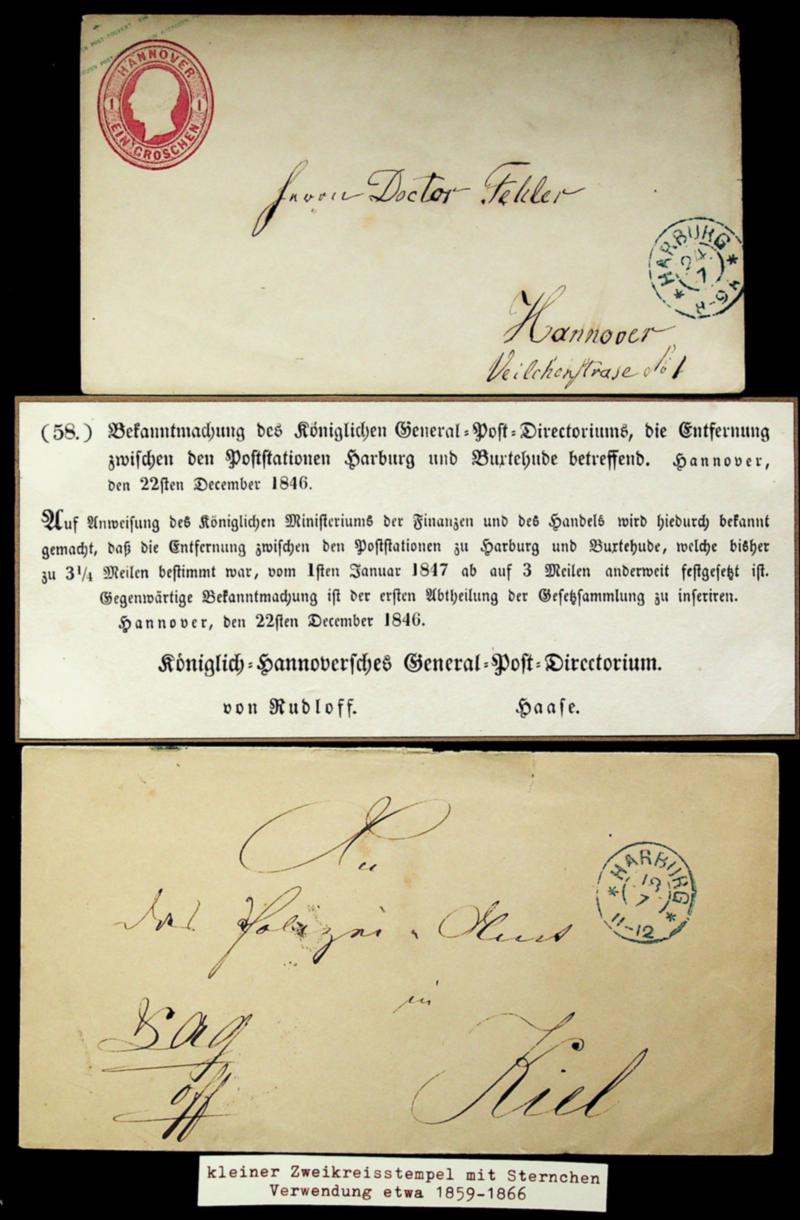 EIN POST-COUVERT
HANNOVER
1 1
EIN GROSCHEN
Herrn Doctor Fehler
HARBURG
24
7
* 6-8 *
Hannover
Veilchenstrase No 1
(58.) Bekanntmachung des Königlichen General-Post-Directoriums, die Entfernung
zwischen den Poststationen Harburg und Buxtehude betreffend. Hannover,
den 22sten December 1846.
Auf Anweisung des Königlichen Ministeriums der Finanzen und des Handels wird hiedurch bekannt
gemacht, daß die Entfernung zwischen den Poststationen zu Harburg und Buxtehude, welche bisher
zu 3 1/4 Meilen bestimmt war, vom 1sten Januar 1847 ab auf 3 Meilen anderweit festgesetzt ist.
Gegenwärtige Bekanntmachung ist der ersten Abtheilung der Gesetzsammlung zu inseriren.
Hannover, den 22sten December 1846.
Königlich-Hannoversches General-Post-Directorium.
von Rudloff. Haase.
An
HARBURG
18
7
* 11-12 *
das Polizei-Amt
in
Kiel
kleiner Zweikreisstempel mit Sternchen
Verwendung etwa 1859-1866